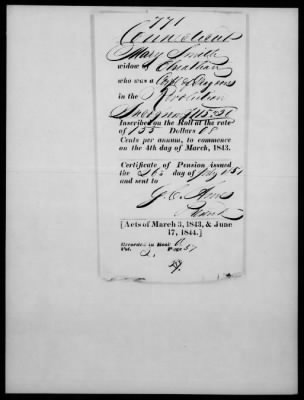 771
Connecticut
Mary Smith
widow of
who was a Capt of Dragoons
in the Revolution
Inscribed on the Roll at the rate
of 155 Dollars 08
Cents per annum, to commence
on the 4th day of March, 1843.
Certificate of Pension issued
the 26 day of July 1851
and sent to
[Acts of March 3, 1843, & June
17, 1844.]
Recorded in Book A
Vol. 2 Page 57